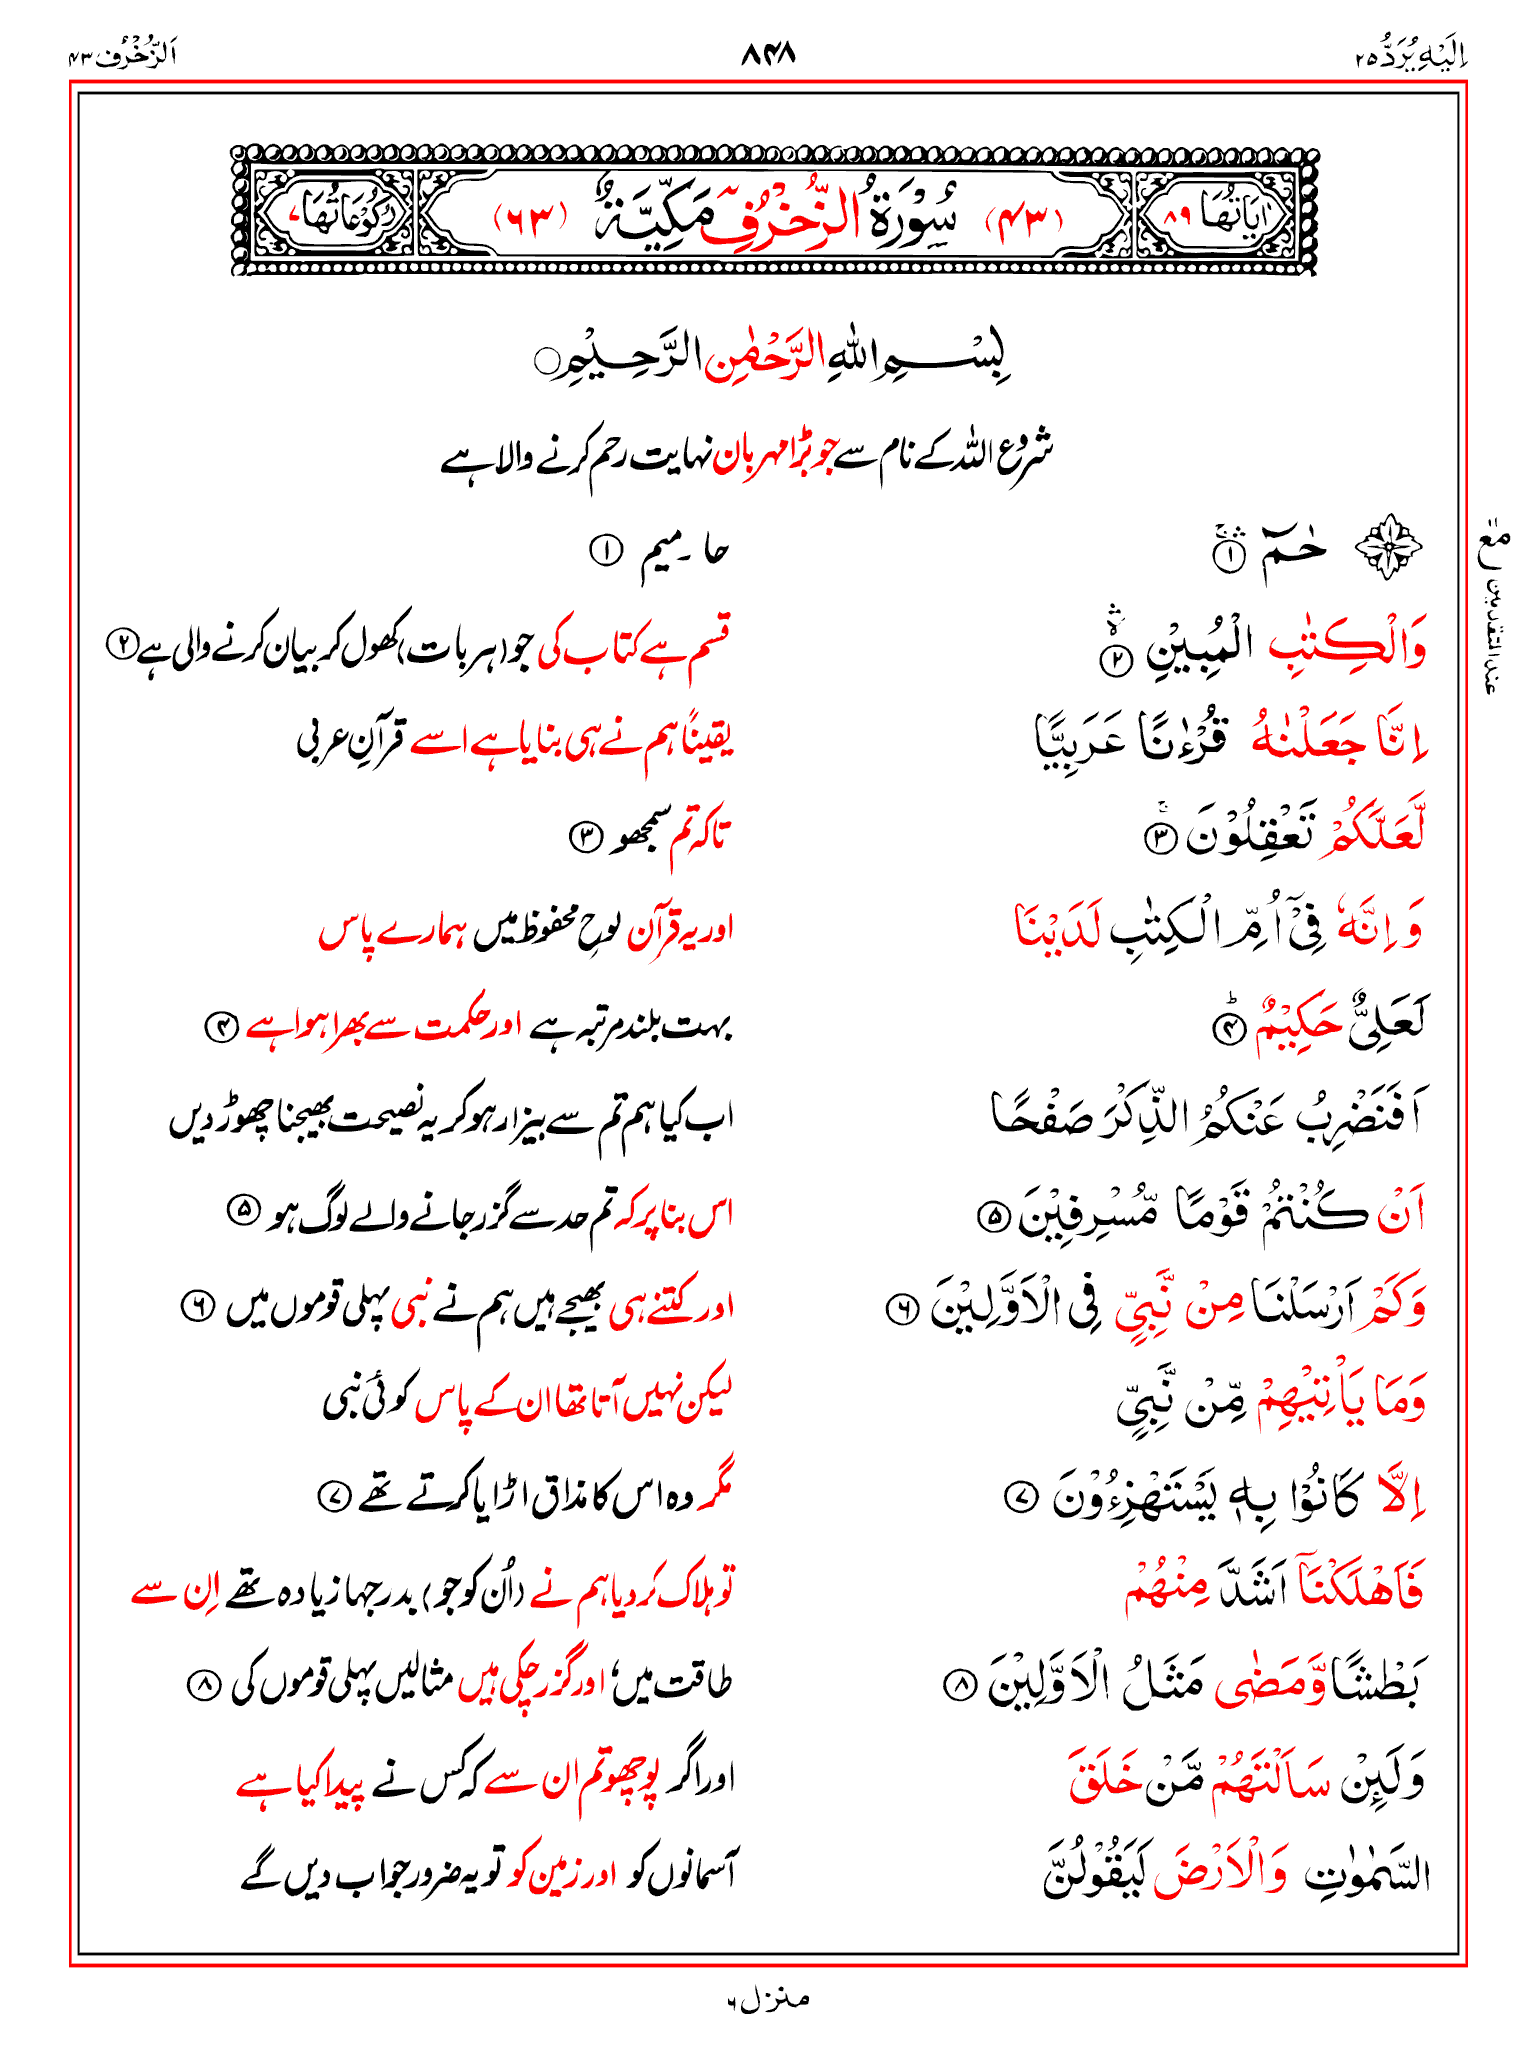 اِلَیْهِ یُرَدُّ ۲۵
۸۴۸
اَلزُّخْرُف ۴۳
اٰیَاتُهَا ۸۹
(۴۳) سُوْرَةُ الزُّخْرُفِ مَكِّیَّةٌ (۶۳)
رُكُوْعَاتُهَا ۷
بِسْمِ اللّٰهِ الرَّحْمٰنِ الرَّحِیْمِ
شروع اللہ کے نام سے جو بڑا مہربان نہایت رحم کرنے والا ہے
حٰمٓ ۚۛ ۱
حا۔ میم ۱
وَالْكِتٰبِ الْمُبِیْنِ ۙۛ ۲
قسم ہے کتاب کی جو (ہر بات) کھول کر بیان کرنے والی ہے ۲
اِنَّا جَعَلْنٰهُ قُرْءٰنًا عَرَبِیًّا
یقیناً ہم نے ہی بنایا ہے اسے قرآنِ عربی
لَّعَلَّكُمْ تَعْقِلُوْنَ ۚ ۳
تاکہ تم سمجھو ۳
وَاِنَّهٗ فِیْۤ اُمِّ الْكِتٰبِ لَدَیْنَا
اور یہ قرآن لوحِ محفوظ میں ہمارے پاس
لَعَلِیٌّ حَكِیْمٌ ؕ ۴
بہت بلند مرتبہ ہے اور حکمت سے بھرا ہوا ہے ۴
اَفَنَضْرِبُ عَنْكُمُ الذِّكْرَ صَفْحًا
اب کیا ہم تم سے بیزار ہو کر یہ نصیحت بھیجنا چھوڑ دیں
اَنْ كُنْتُمْ قَوْمًا مُّسْرِفِیْنَ ۵
اس بنا پر کہ تم حد سے گزر جانے والے لوگ ہو ۵
وَكَمْ اَرْسَلْنَا مِنْ نَّبِیٍّ فِی الْاَوَّلِیْنَ ۶
اور کتنے ہی بھیجے ہیں ہم نے نبی پہلی قوموں میں ۶
وَمَا یَاْتِیْهِمْ مِّنْ نَّبِیٍّ
لیکن نہیں آتا تھا ان کے پاس کوئی نبی
اِلَّا كَانُوْا بِهٖ یَسْتَهْزِءُوْنَ ۷
مگر وہ اس کا مذاق اڑایا کرتے تھے ۷
فَاَهْلَكْنَاۤ اَشَدَّ مِنْهُمْ
تو ہلاک کر دیا ہم نے (اُن کو جو) بدرجہا زیادہ تھے اِن سے
بَطْشًا وَّمَضٰی مَثَلُ الْاَوَّلِیْنَ ۸
طاقت میں، اور گزر چکی ہیں مثالیں پہلی قوموں کی ۸
وَلَىِٕنْ سَاَلْتَهُمْ مَّنْ خَلَقَ
اور اگر پوچھو تم ان سے کہ کس نے پیدا کیا ہے
السَّمٰوٰتِ وَالْاَرْضَ لَیَقُوْلُنَّ
آسمانوں کو اور زمین کو تو یہ ضرور جواب دیں گے
مع
عند المتقدمین
منزل ۶